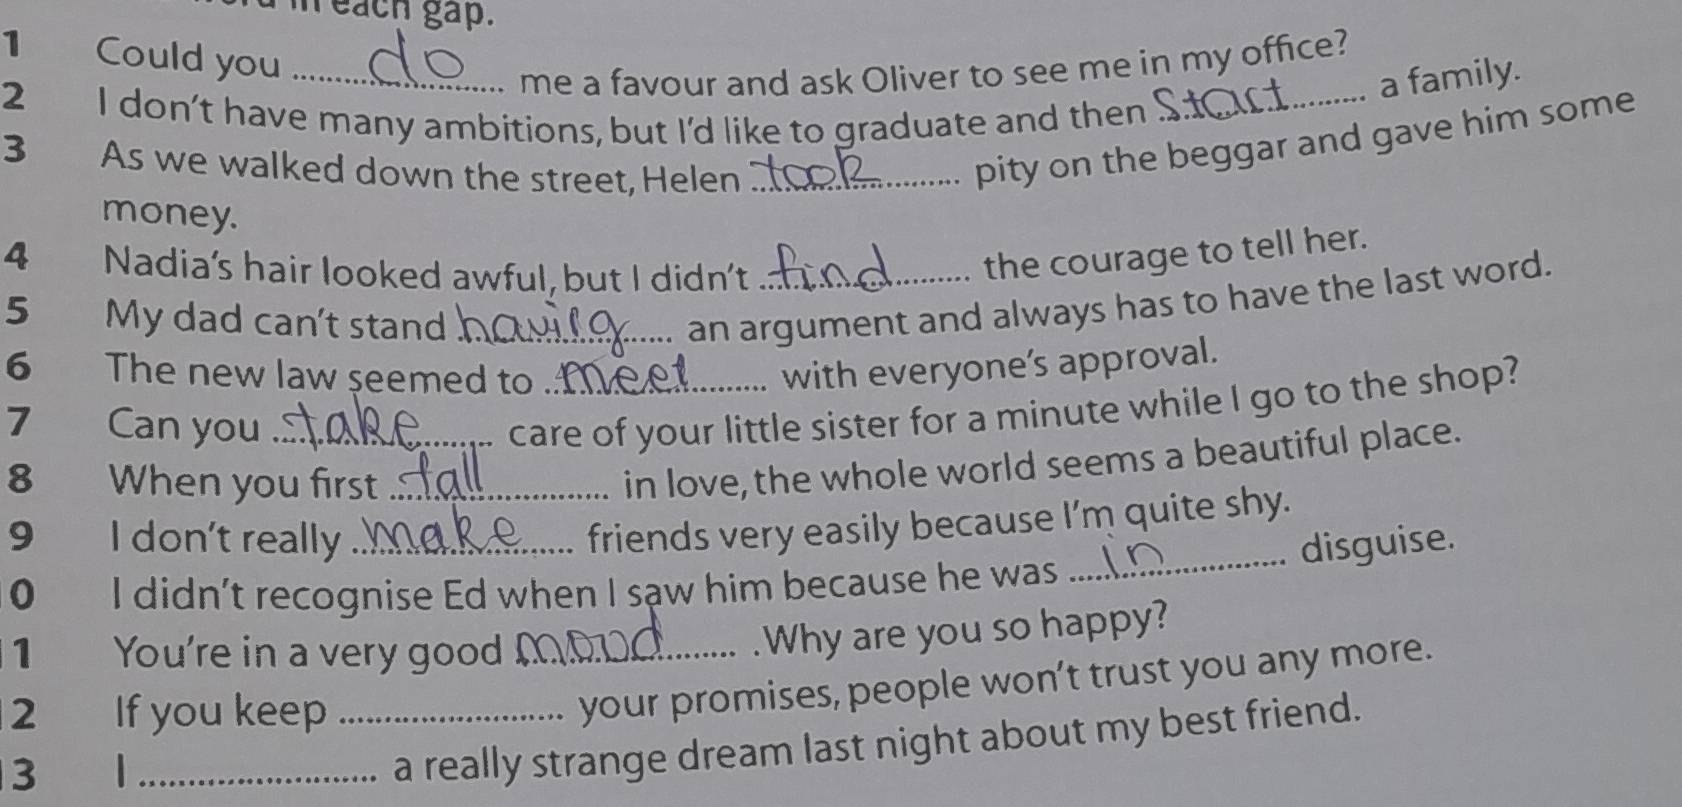 in each gap.
1 Could you ....do.... me a favour and ask Oliver to see me in my office?
2 I don't have many ambitions, but I'd like to graduate and then start........ a family.
3 As we walked down the street, Helen ....took........ pity on the beggar and gave him some
money.
4 Nadia's hair looked awful, but I didn't ....find........ the courage to tell her.
5 My dad can't stand having...... an argument and always has to have the last word.
6 The new law seemed to ..meet........ with everyone's approval.
7 Can you ....take........ care of your little sister for a minute while I go to the shop?
8 When you first ....fall............ in love, the whole world seems a beautiful place.
9 I don't really ..make...... friends very easily because I'm quite shy.
0 I didn't recognise Ed when I saw him because he was .....in............ disguise.
11 You're in a very good mood........ . Why are you so happy?
12 If you keep ........................ your promises, people won't trust you any more.
13 I ........................ a really strange dream last night about my best friend.